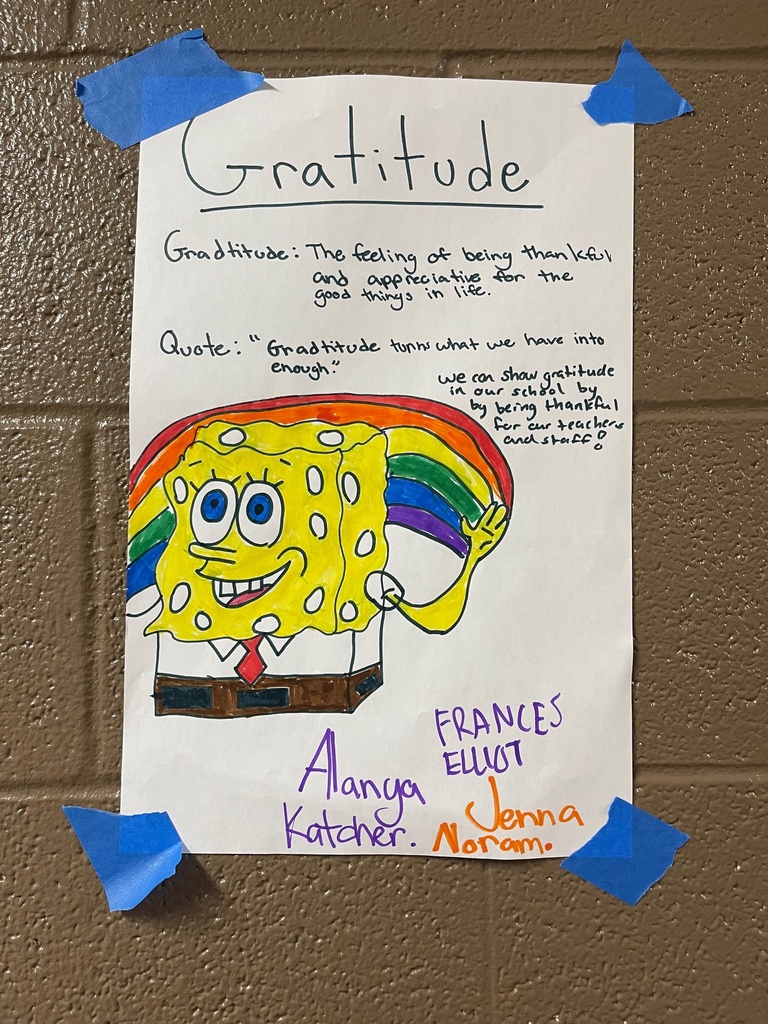 Gratitude
Gradtitude: The feeling of being thankful
and appreciative for the
good things in life.
Quote: "Gradtitude turns what we have into
enough."
we can show gratitude
in our school by
by being thankful
for our teachers
and staff!
FRANCES
ELLIOT
Alanya
Katcher.
Jenna
Noram.